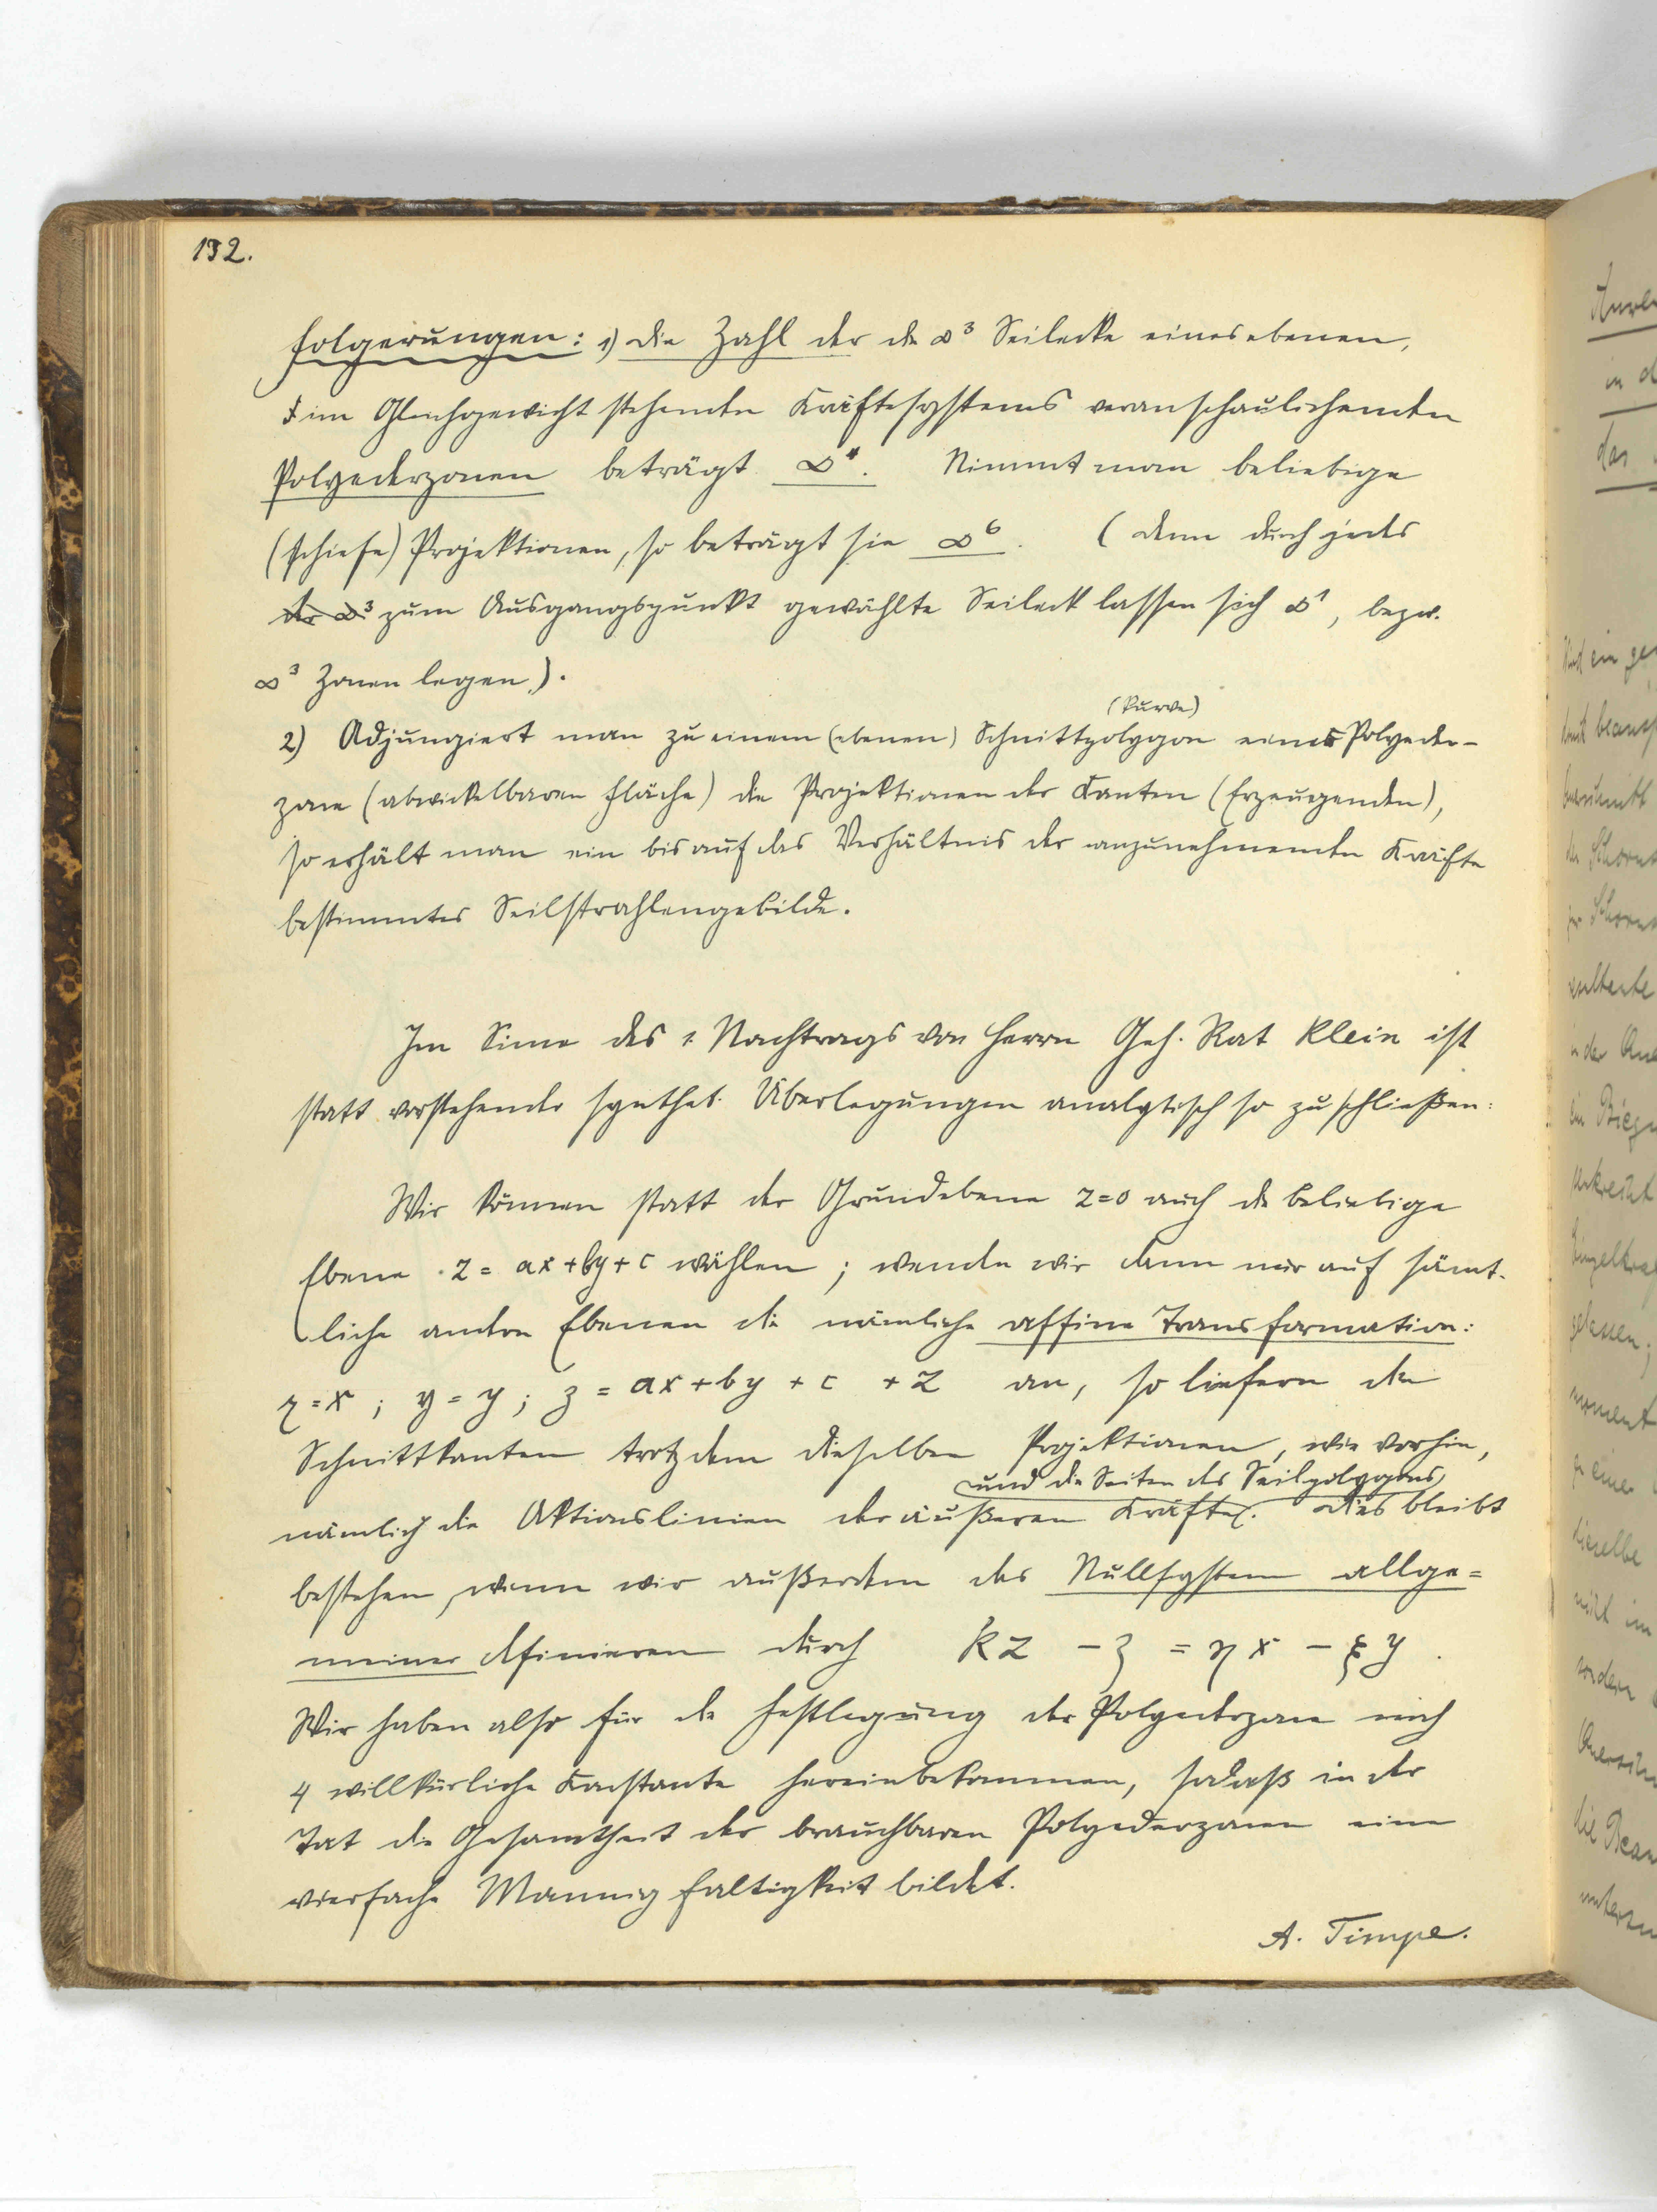 132.
Folgerungen: 1) Die Zahl der die ∞³ Seilecke eines ebenen,
im Gleichgewicht stehenden Kräftesystems veranschaulichenden
Polyederzonen beträgt ∞⁴. Nimmt man beliebige
(schiefe) Projektionen, so beträgt sie ∞⁶. (denn durch jedes
der ∞³ zum Ausgangspunkt gewählte Seileck lassen sich ∞¹, bezw.
∞³ Zonen legen).
(kurve)
2) Adjungiert man zu einem (ebenen) Schnittpolygon eines Polyeder-
zone (abwickelbaren Fläche) die Projektionen der Kanten (Erzeugenden),
so erhält man ein bis auf das Verhältnis der anzunehmenden Kräfte
bestimmtes Seilstrahlengebilde.
Im Sinne des 1. Nachtrags von Herrn Geh. Rat Klein ist
statt vorstehender synthet. Überlegungen analytisch so zu schließen:
Wir können statt der Grundebene z=0 auch die beliebige
Ebene z = ax+by+c wählen; wenden wir dann nur auf sämt-
liche andren Ebenen die nämliche affine Transformation:
x = x; y = y; z = ax+by + c + z an, so liefern die
Schnittkanten trotzdem dieselben Projektionen, wie vorhin,
und die Seiten des Seilpolygons
nämlich die Aktionslinien der äußeren Kräfte. Dies bleibt
bestehen, wenn wir außerdem das Nullsystem allge=
meiner definieren durch kz - ζ = ηx - ξy.
Wir haben also für die Festlegung der Polyederzone noch
4 willkürliche Konstante hereinbekommen, sodaß in der
Tat die Gesamtheit der brauchbaren Polyederzonen eine
vierfache Mannigfaltigkeit bildet.
A. Timpe.